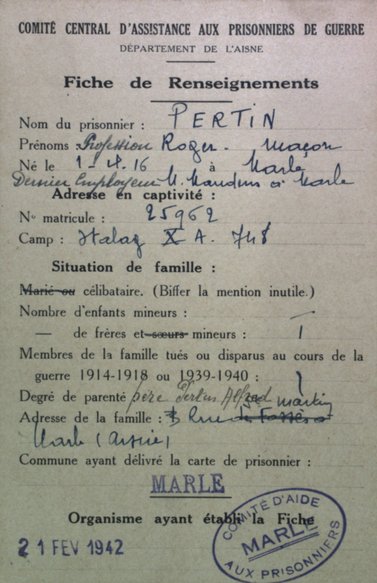 COMITÉ CENTRAL D'ASSISTANCE AUX PRISONNIERS DE GUERRE
DÉPARTEMENT DE L'AISNE
Fiche de Renseignements
Nom du prisonnier : PERTIN
Prénoms Profession Roger - Maçon
Né le 1-4.16 à Marle
Dernier Employeur M. à Marle
Adresse en captivité :
No matricule : 25962
Camp : Stalag X A. 748
Situation de famille :
Marié ou célibataire. (Biffer la mention inutile.)
Nombre d'enfants mineurs : —
— de frères et sœurs mineurs : 1
Membres de la famille tués ou disparus au cours de la
guerre 1914-1918 ou 1939-1940 : 1
Degré de parenté père Pertin Alfred
Adresse de la famille : 3 Rue
Marle (Aisne)
Commune ayant délivré la carte de prisonnier :
MARLE
Organisme ayant établi la Fiche
21 FEV 1942
COMITÉ D'AIDE
MARLE
AUX PRISONNIERS